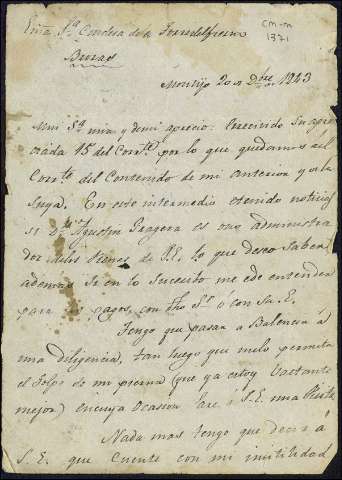 Exma Sra Condesa de la Torre del Fresno
CM-M
1371
Burgos
Montijo 20 de Dbre 1843
Mui Sra mia y de mi aprecio: Recivido su apre
ciada 15 del Corrte por lo que quedamos al
Corrte del Contenido de mi anterior y de la
Suya. En este intermedio e tenido noticia
si Dn Agustin Pragera es su administra
dor de los vienes de S.E. lo que deseo saber,
ademas si en lo Sucesito me e de entender
para los pagos, con dho Sr o con Sa. E.
Tengo que pasar a Balencia á
una diligencia, tan luego que melo permita
el de mi pierna (que ya estoy Vastante
mejor) en cuya ocasion are á S.E. una Visita
Nada mas tengo que decir á
S.E. que cuente con mi inutilidad